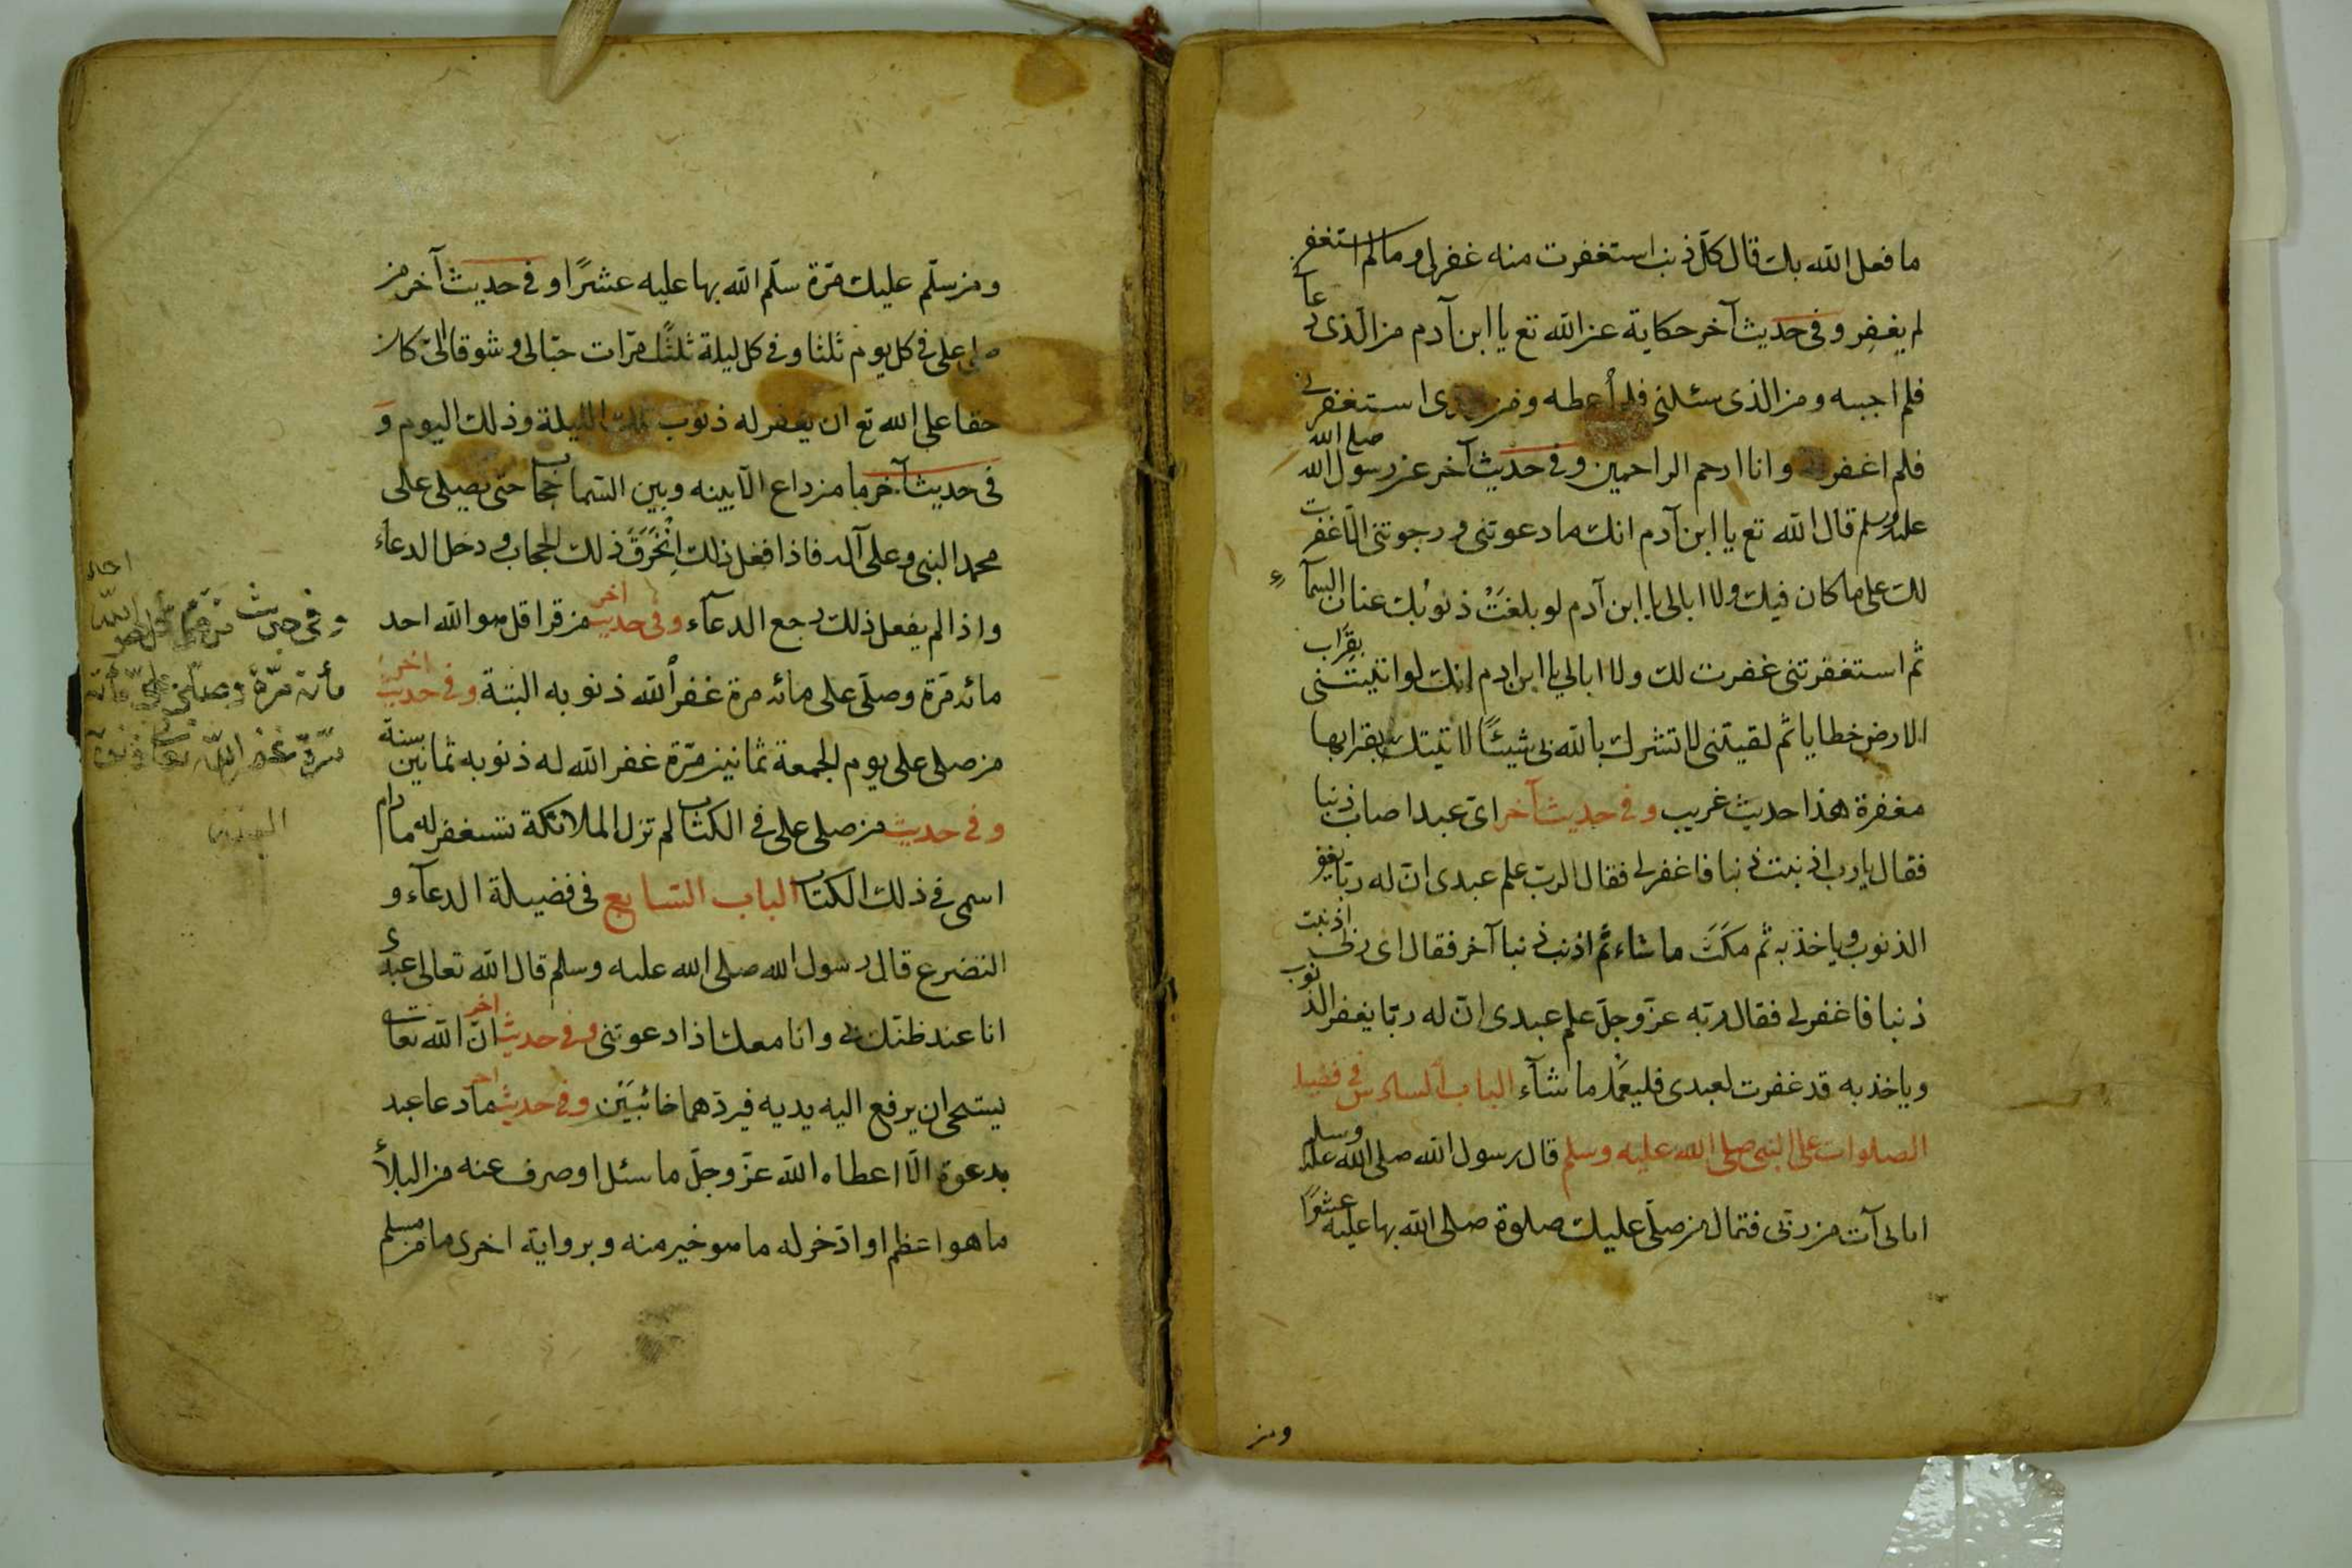 ما فعل الله بك قال كلّ ذنب استغفرت منه غفر لى وما لم استغفر
لم يغفر وفى حديث آخر حكاية عن الله تع يا ابن آدم من الّذى دعا
فلم اجبه ومن الذى سئلنى فلم أعطه ومن استغفرنى
فلم اغفر وانا ارحم الراحمين وفى حديث آخر عن رسول الله صلى الله
عليه وسلم قال الله تع يا ابن آدم انك ما دعوتنى ورجوتنى الّا غفرت
لك على ما كان فيك ولا ابالى يا ابن آدم لو بلغَتْ ذنوبك عنان السمآء
ثم استغفرتنى غفرت لك ولا ابالى يا ابن ادم انك لو اتيتنى بقراب
الارض خطايا ثم لقيتنى لا تشرك بالله بى شيئًا لاتيتك بقرابها
مغفرة هذا حديث غريب وفى حديث آخر اىّ عبد اصاب ذنبا
فقال يا رب اذنبت ذنبا فاغفر لى فقال الربّ علم عبدى انّ له ربّا يغفر
الذنوب وياخذ به ثم مكَثَ ما شاء ثم اذنب ذنبا آخر فقال اى ربّى اذنبت
ذنبا فاغفر لى فقال ربّه عزّ وجلّ علم عبدى انّ له ربّا يغفر الذنوب
وياخذ به قد غفرت لعبدى فليعمل ما شآء الباب السادس فى فضيلة
الصلوات على النبى صلى الله عليه وسلم قال رسول الله صلى الله عليه وسلم
اتانى آت من ربّى فقال من صلّى عليك صلوة صلى الله بها عليه عشرًا
ومن
ومن سلّم عليك مرّة سلّم الله بها عليه عشرًا وفى حديث آخر من
صلى على فى كل يوم ثلثا وفى كل ليلة ثلث مرّات حبّا لى وشوقا الىّ كان
حقا على الله تع ان يغفر له ذنوب تلك الليلة وذلك اليوم و
فى حديث آخر ما من داع الّا بينه وبين السّما حجاب حتى يصلى على
محمد النبى وعلى آله فاذا فعل ذلك اِنْخَرَقَ ذلك الحجاب ودخل الدعاء
واذا لم يفعل ذلك رجع الدعآء وفى حديث اخر من قرا قل هو الله احد
مائه مرّة وصلّى على مائه مرة غفر الله ذنوبه البتة وفى حديث اخر
من صلى على يوم الجمعة ثمانين مرّة غفر الله له ذنوبه ثمانين سنة
وفى حديث من صلى على فى الكتاب لم تزل الملائكة تستغفر له ما دام
اسمى فى ذلك الكتاب الباب السابع فى فضيلة الدعآء و
التضرع قال رسول الله صلى الله عليه وسلم قال الله تعالى عبدى
انا عند ظنّك بى وانا معك اذا دعوتنى وفى حديث اخر انّ الله تعا
يستحى ان يرفع اليه يديه فيردّهما خائبَيْن وفى حديث اخر ما دعا عبد
بدعوة الّا اعطاه الله عزّ وجلّ ما سئل او صرف عنه من البلأ
ما هو اعظم او ادّخر له ما هو خير منه وبرواية اخرى ما من مسلم
وفى حديث من قرأ قل هو الله احد
مأئة مرّة وصلى علىّ مأئة
مرّة غفر الله تعا ذنوبه
البتة